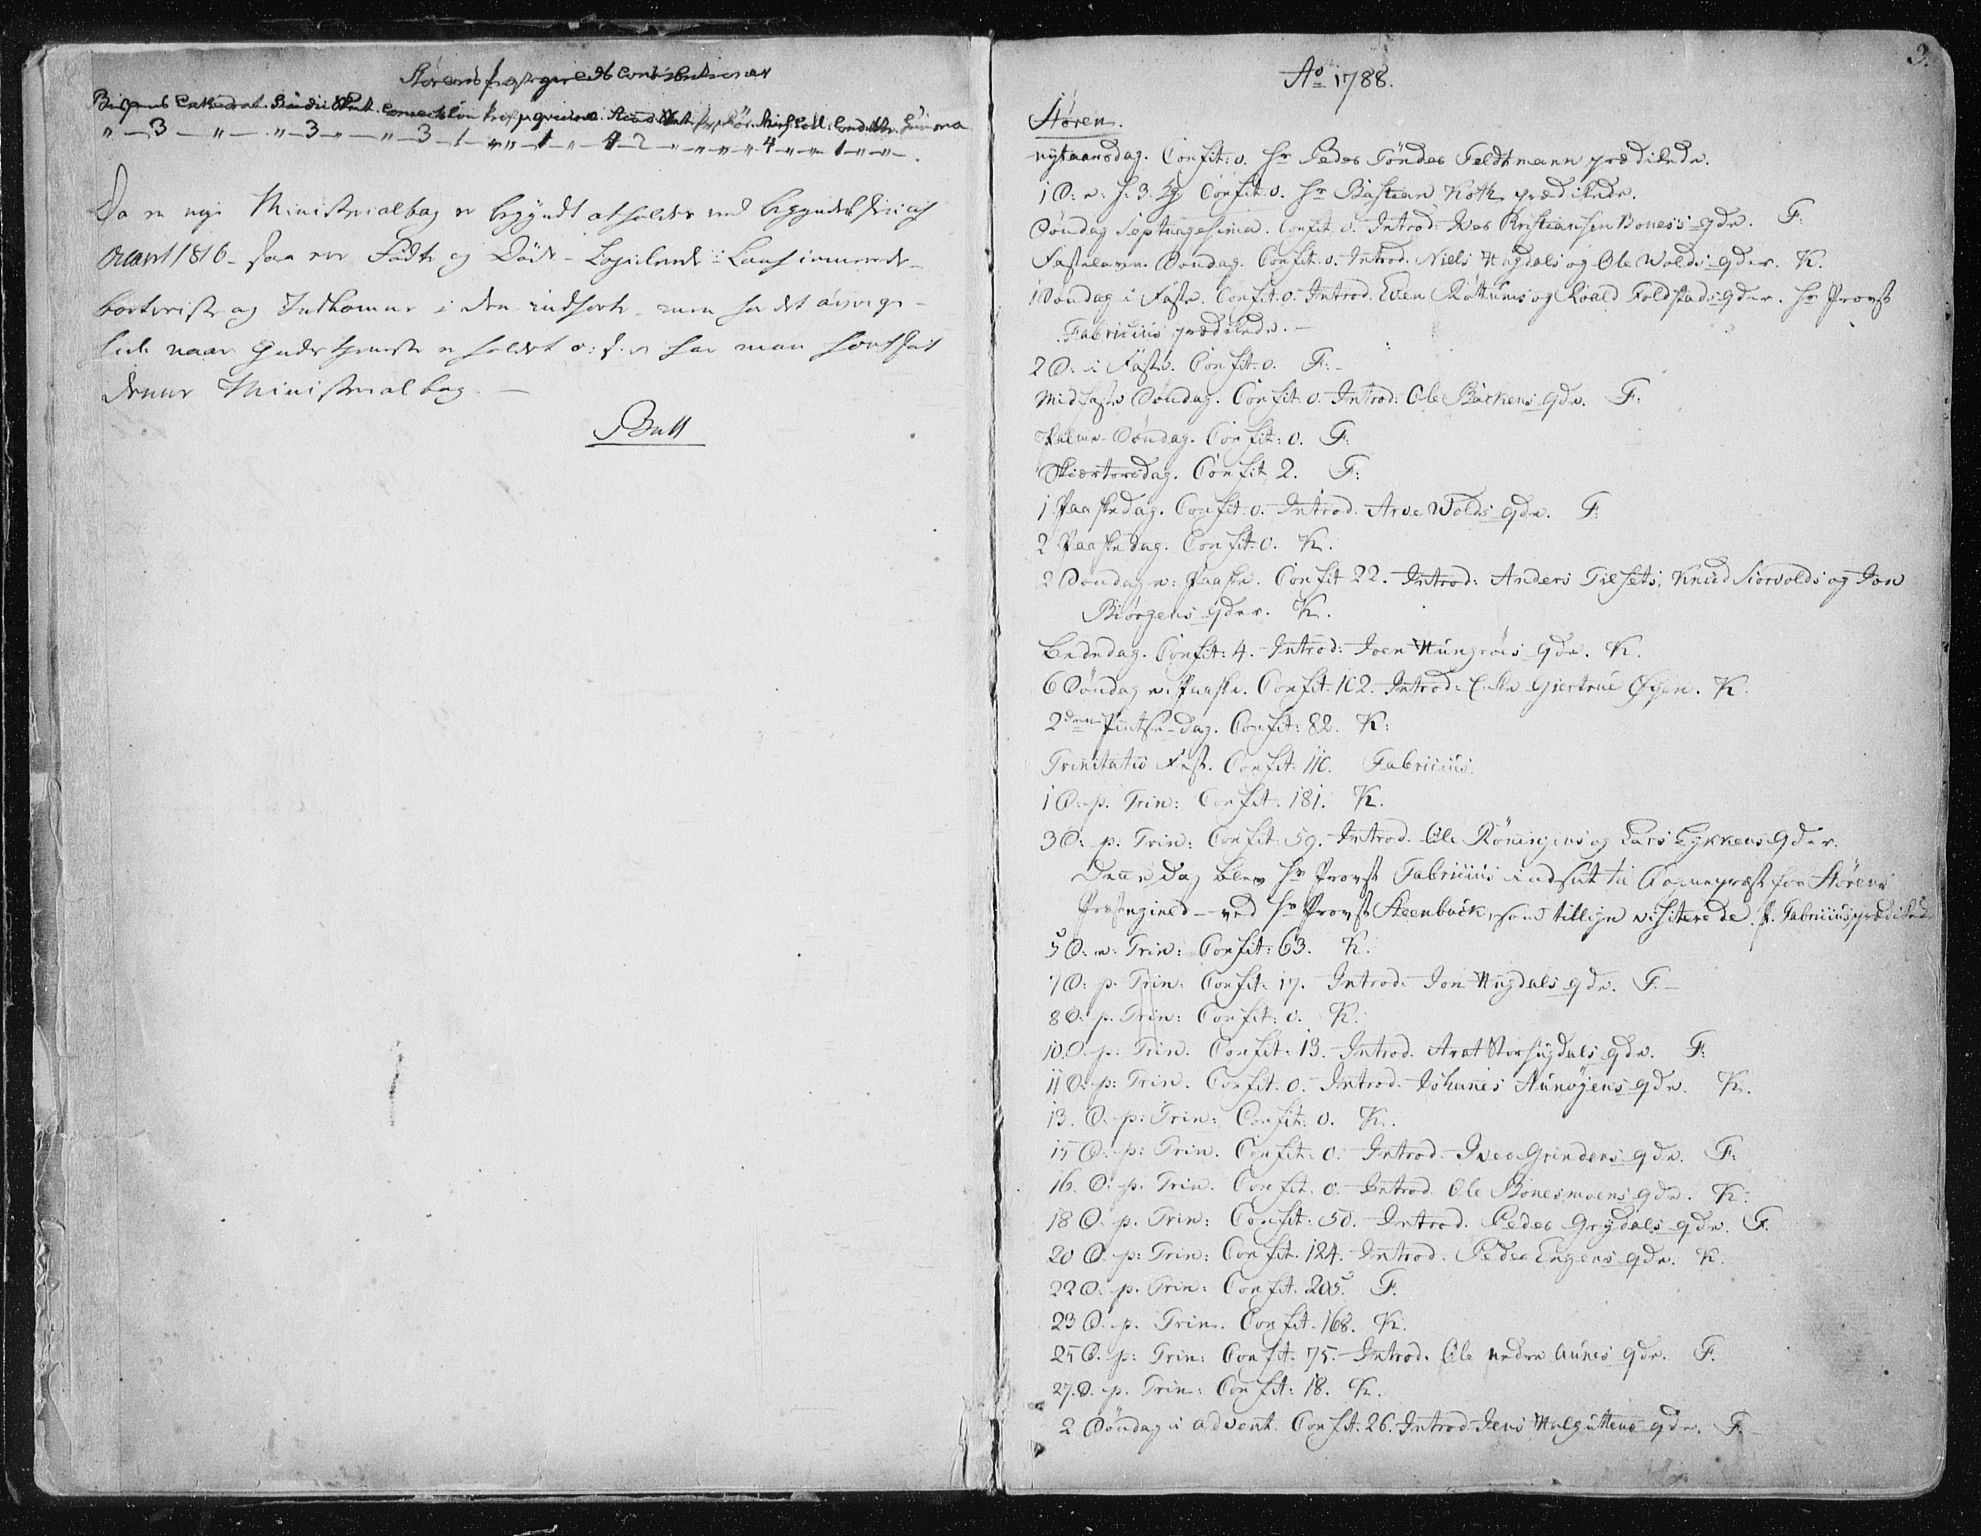 Størens præstegields Contributioner
" — 3 — " — " — 3 — " — " — 3
Da en nye Ministerialbog er begyndt at holdes ved begyndelsen af
Aaret 1816 — saa er Fødte og Døde —
bortreiste og Indkomne i den indførte — men for det øvrige
naar Gudstieneste er holdet o: s: v: har man fortsat
denne Ministerialbog. —
Bull
3.
Ao 1788.
Støren.
nytaarsdag. Confit: 0. Hr Peder Tönder Feldtmann prædikede.
1 S: e: H. 3. K. Confit. 0. Hr Bastian Koth prædikede.
Søndag Septuagesima. Confit. 0. Introd: Iver Kristiansen Bones's qde. F:
Fastelavns Søndag. Confit. 0. Introd. Niels Hugdals og Ole Wolds qder. K.
1 Søndag i Faste. Confit. 0. Introd. Even Rottums og Roald Foldstads qder. Hr Provst
Fabricius prædikede. —
2 S: i Faste. Confit. 0. F: —
Midfaste Søndag. Confit. 0. Introd: Ole Backens qde. F:
Palme-Søndag. Confit: 0. F:
Skiærtorsdag. Confit. 2. F:
1 Paaskedag. Confit. 0. Introd. Arve Wolds qde. F:
2 Paaskedag. Confit. 0. K.
2 Søndag e: Paaske. Confit 22. Introd: Anders Tilsets, Knud Siorvolds og Jon
Biörgens qder. K.
Bededag. Confit: 4. Introd: Joen Hungröes qde. K.
6 Søndag e: Paaske. Confit. 102. Introd: Giertrue Øyen. K.
2den Pintse-dag. Confit: 82. K:
Trinitatis Fest. Confit. 110. Fabricius.
1 S. p. Trin: Confit. 181. K.
3 S: p: Trin: Confit: 59. Introd. Ole Röningens og Lars Lykkens qder.
Denne Dag blev Hr Provst Fabricius indsat til Sognepræst for Störens
Præstegield — ved Hr Provst Steenbuck, som tillige visiterede. P. Fabricius prædikede
5 S: e: Trin: Confit: 63. K.
7 S: p. Trin: Confit: 17. Introd. Jon Hugdals qde. F. —
8 S. p. Trin: Confit: 0. K.
10. S. p: Trin. Confit: 13. Introd. Arat Storhugdals qde. F:
11 S. p: Trin. Confit. 0. Introd. Johanes Aunøyens qde. K.
13. S. p: Trin: Confit: 0. K.
15 S: p: Trin. Confit: 0. Introd. Iver Grindens qde. F:
16. S. p. Trin. Confit. 0. Introd. Ole Bonesmoens qde. K:
18 S. p. Trin: Confit: 50. Introd. Peder Grydals qde. F.
20 S. p: Trin: Confit. 124. Introd. Peder Engens qde. K.
22 S. p. Trin: Confit. 205. F.
23 S. p. Trin. Confit. 168. K.
25 S. p: Trin: Confit. 75. Introd. Ole nedre Aunes qde. F.
27. S. p. Trin: Confit: 18. K.
2 Söndag i advent. Confit. 26. Introd. Jens Halguttens qde. F.